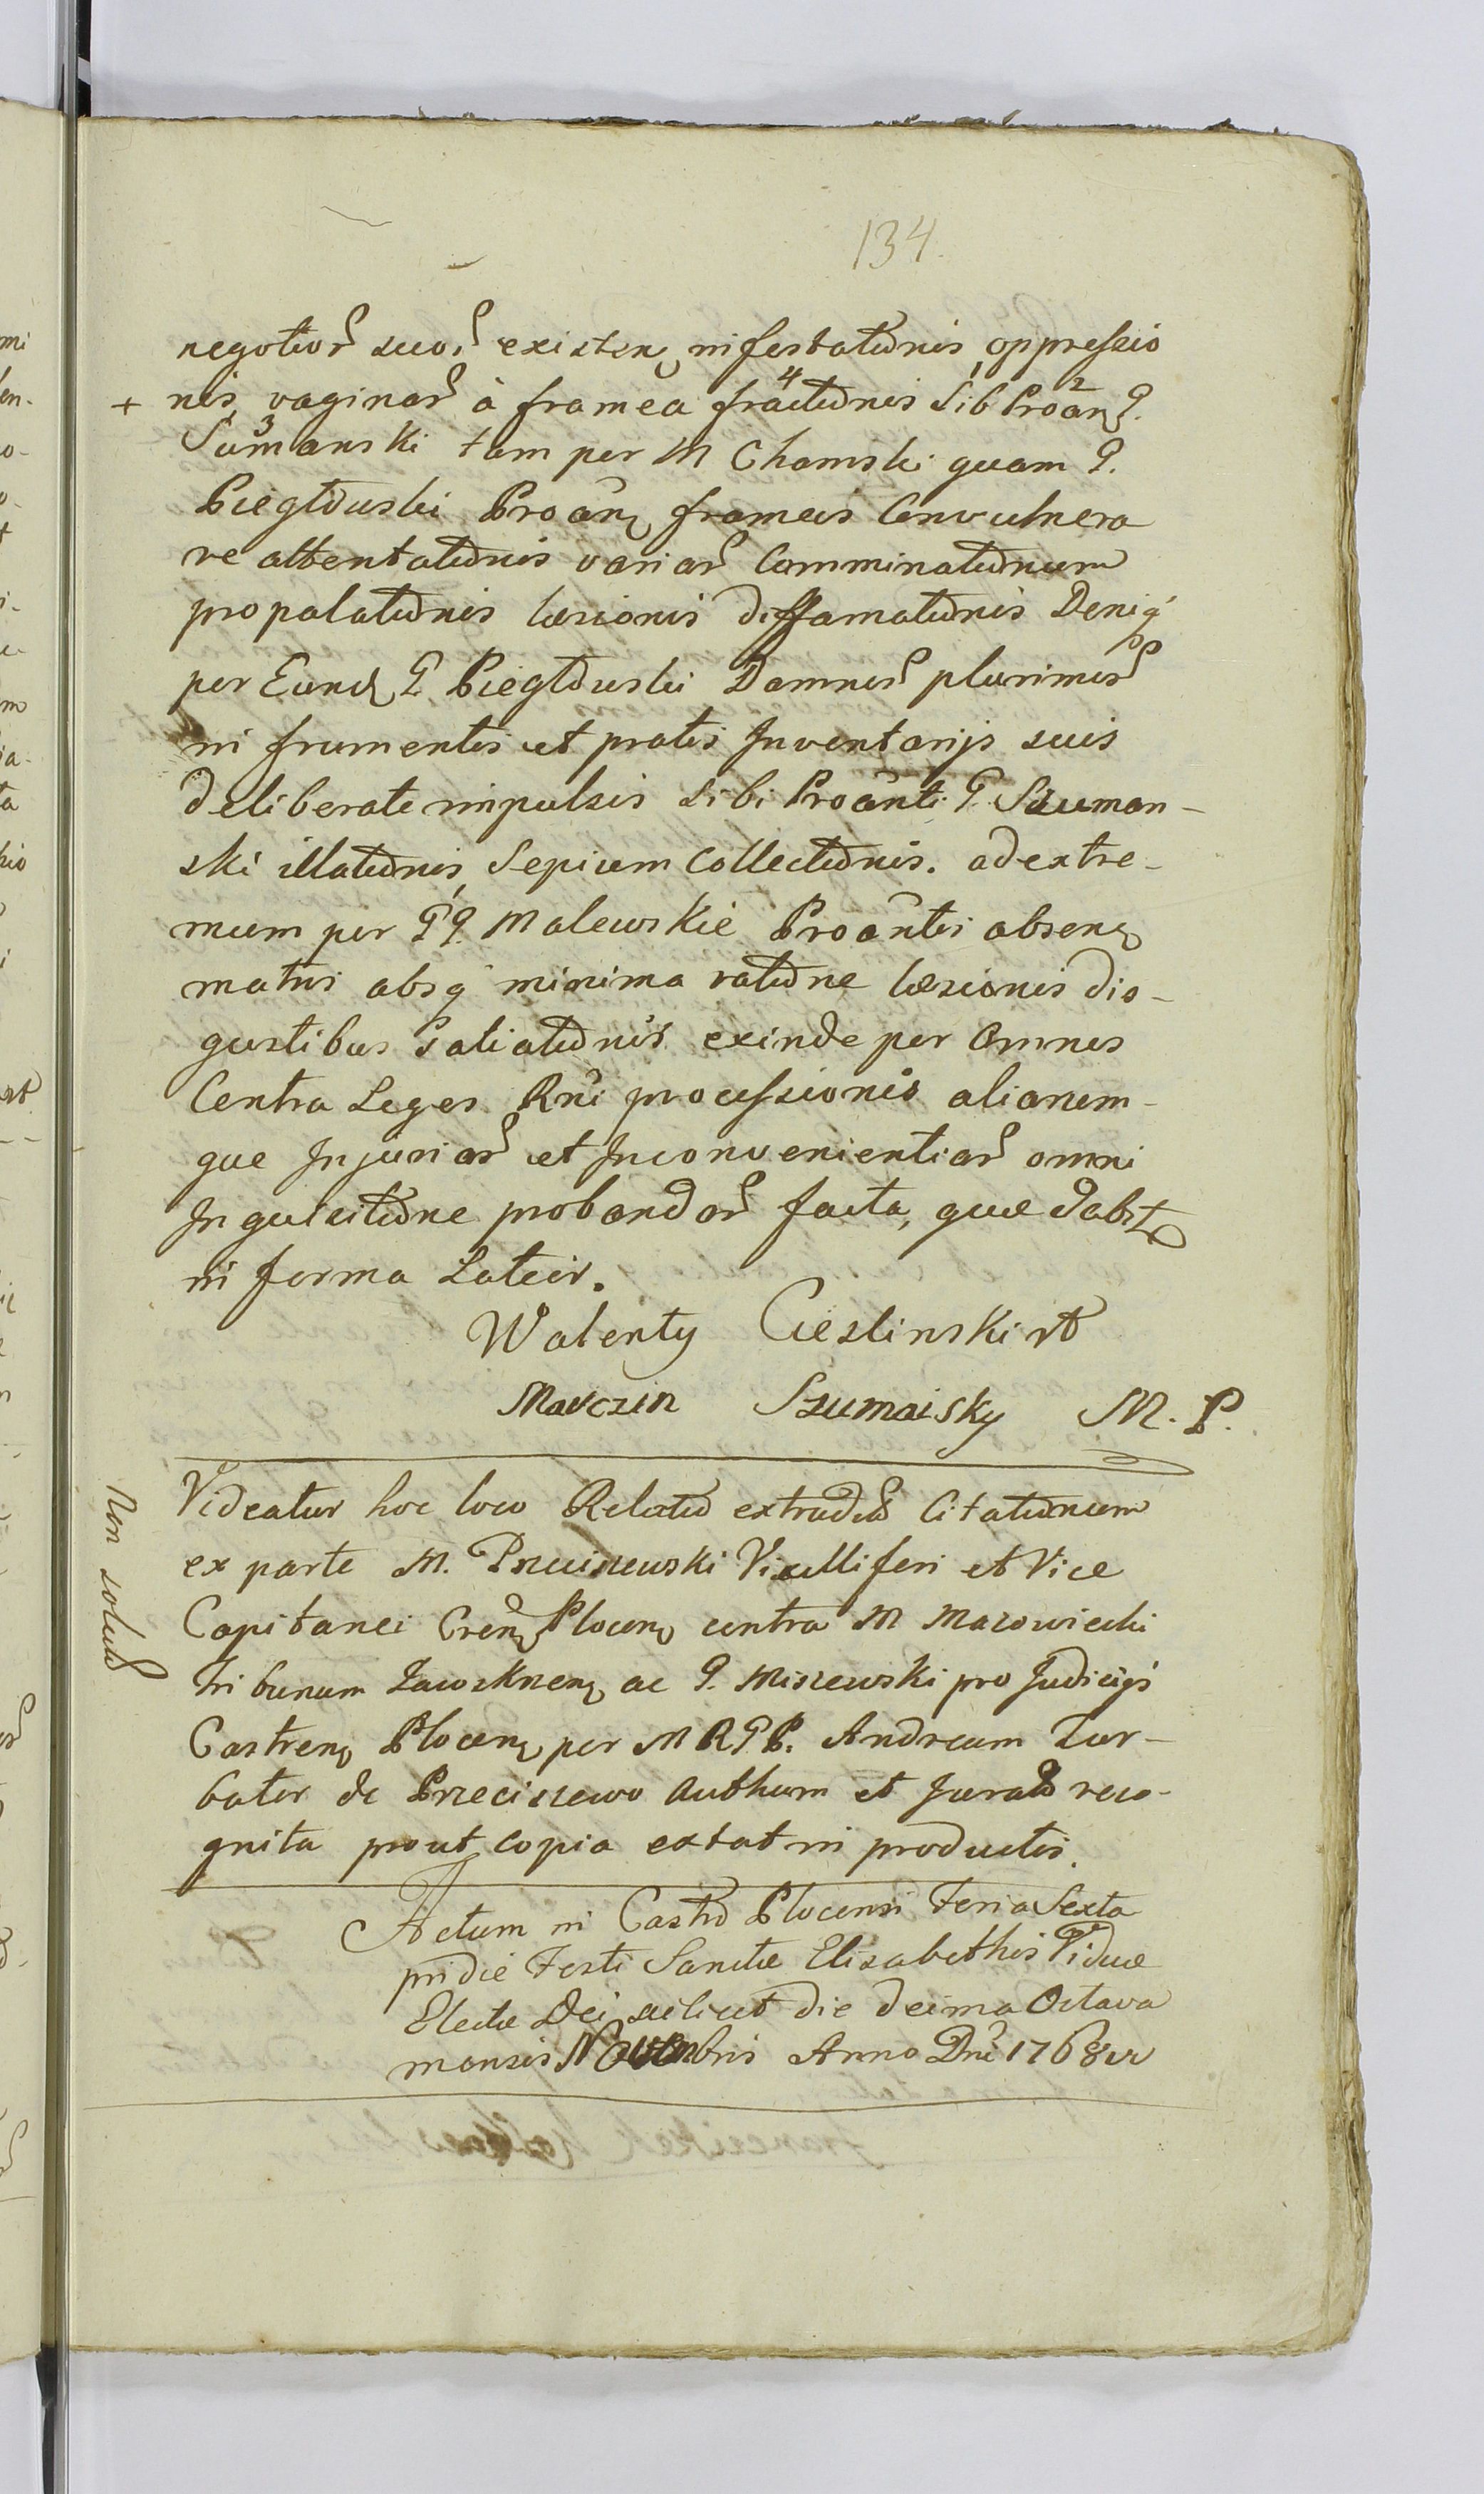 134.
negotior suor existen infestationis oppressio
+ nis vaginar à framea fractionis Sib Proan G.
Sumanski tam per M Chamski quam G.
Piegłowski Proan frameis Convulnera
re attentationis variar Comminationum
propalationis læsionis diffamationis Deniq
per Eund G Piegłowski Damnor plurimor
in frumentis et pratis Inventarijs suis
deliberate impulsis sibi Proanti G. Szuman-
ski illationis, Sepium Collectionis. ad extre-
mum per GG. Malewskie Proantis absen
matris absq minima ratione læsionis dis-
gustibus satiationis exinde per omnes
Contra Leges Rni processionis aliarum-
que Injuriar et Inconvenientiar omni
Inquisitione probandar facta, quæ dabit
in forma Latior.
Walenty Cieslinski
Marczin Szumaisky M. P.
Non solut
Videatur hoc loco Relatio extraditis Citationum
ex parte M. Przeciszewski Vexilliferi et Vice
Capitanei Gren Plocen contra M Mazowiecki
Tribunum Zawskrzen ac G. Miszewski pro Judicijs
Castren Plocen per M R P P. Andream Zur-
bater de Przeciszewo Authum et Jurato reco-
gnita prout copia extat in productis.
Actum in Castro Plocensi Feria Sexta
pridie Festi Sanctæ Elisabethis Viduæ
Electæ Dei scilicet die decima Octava
mensis Novembris Anno Dni 1768vo